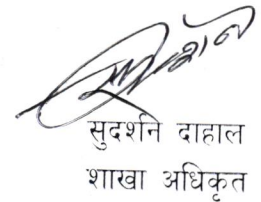 सुदर्शन दाहाल
शाखा अधिकृत